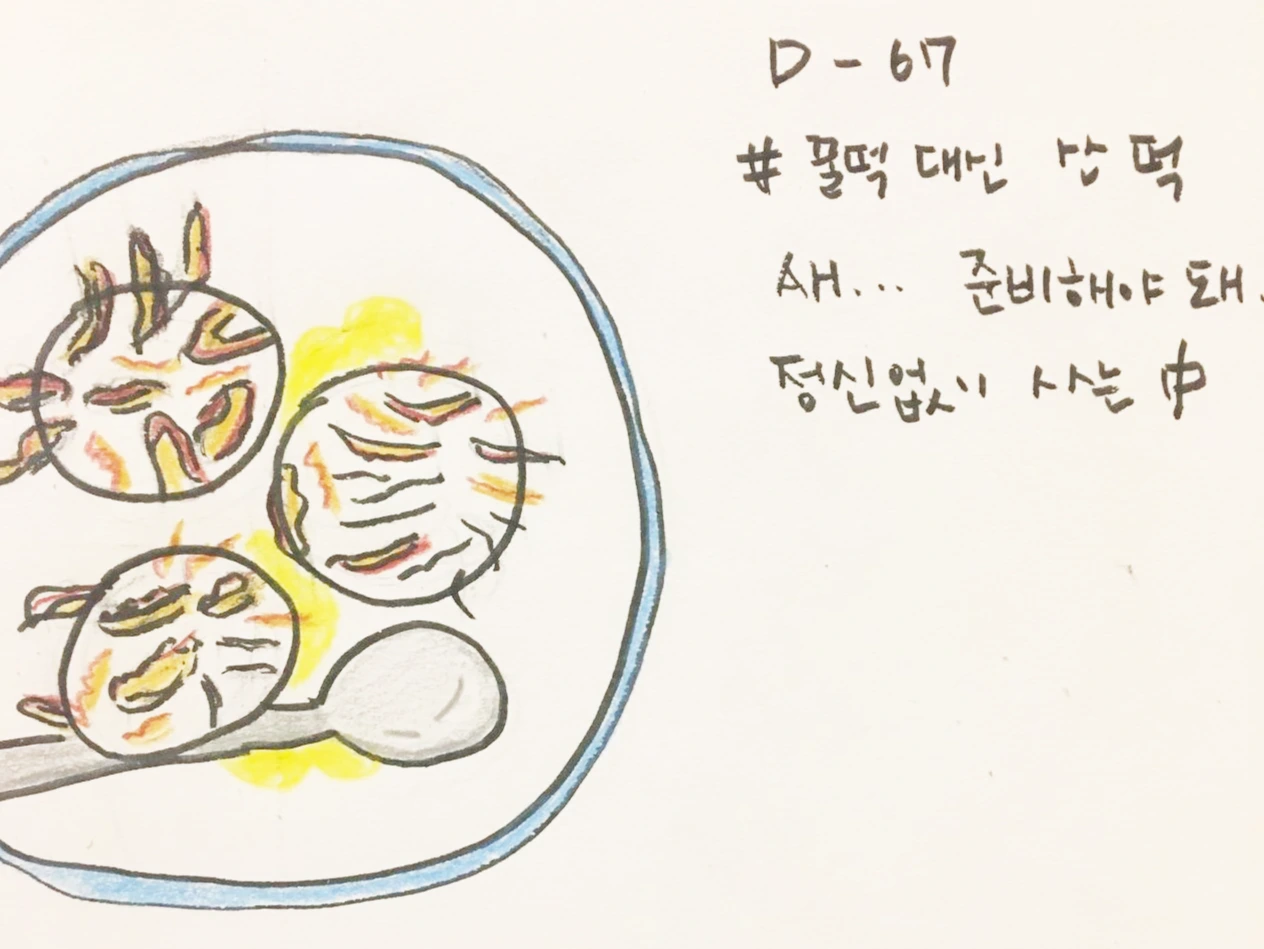 D - 67
# 물떡 대신 산 떡
AH... 준비해야 돼.
정신없이 사는 中